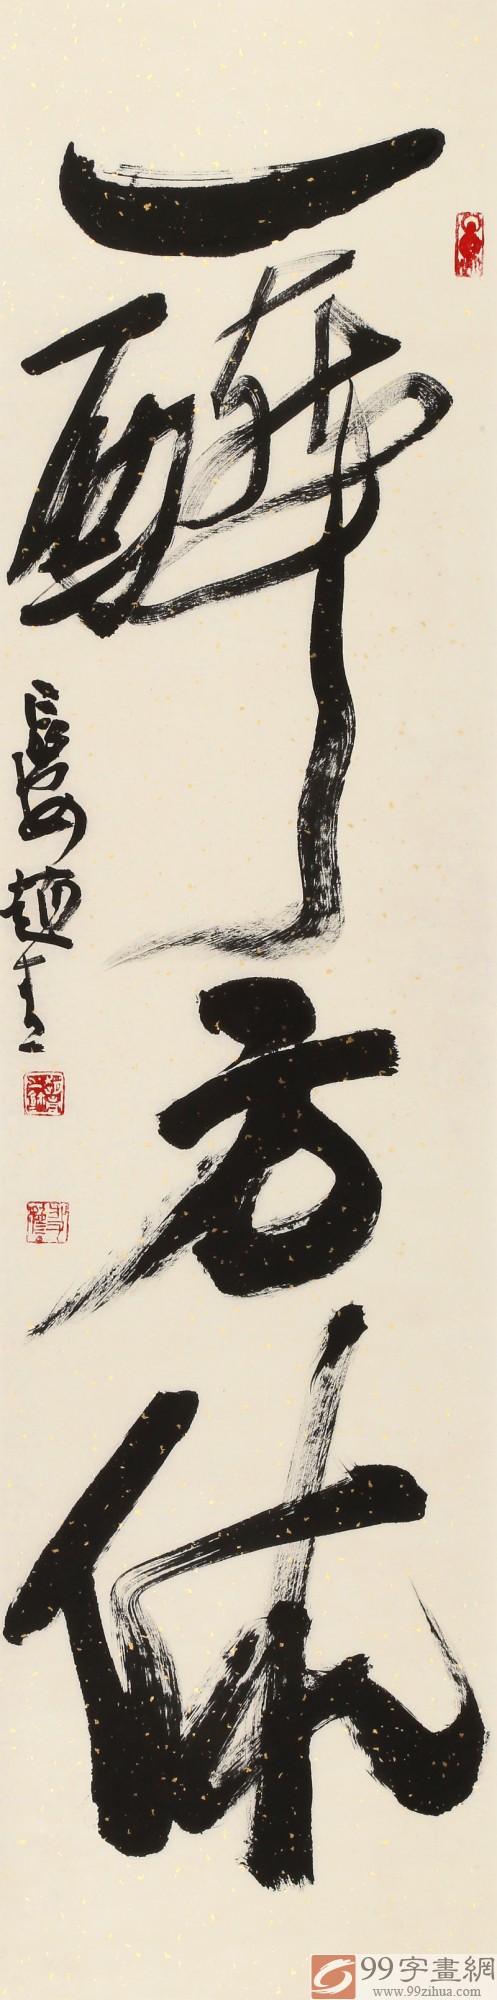 一醉方休
長安趙青
99字畫網
www.99zihua.com